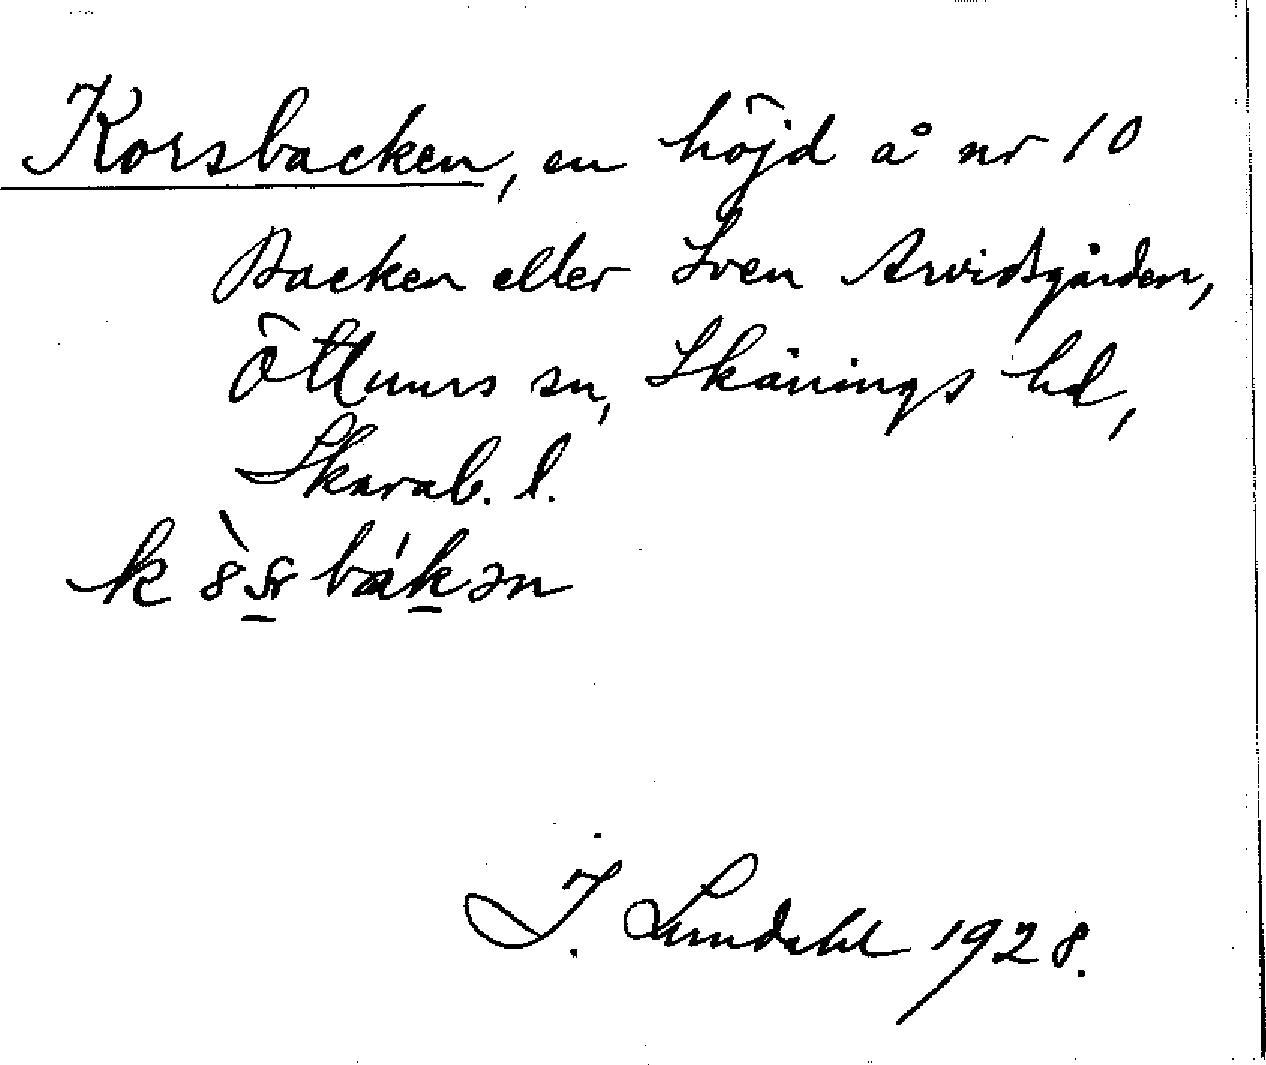 Korsbacken, en höjd å nr 10
Backen eller Sven Arvidsgården,
Öttums sn, Skånings hd,
Skarab. l.
I. Lundahl 1928.